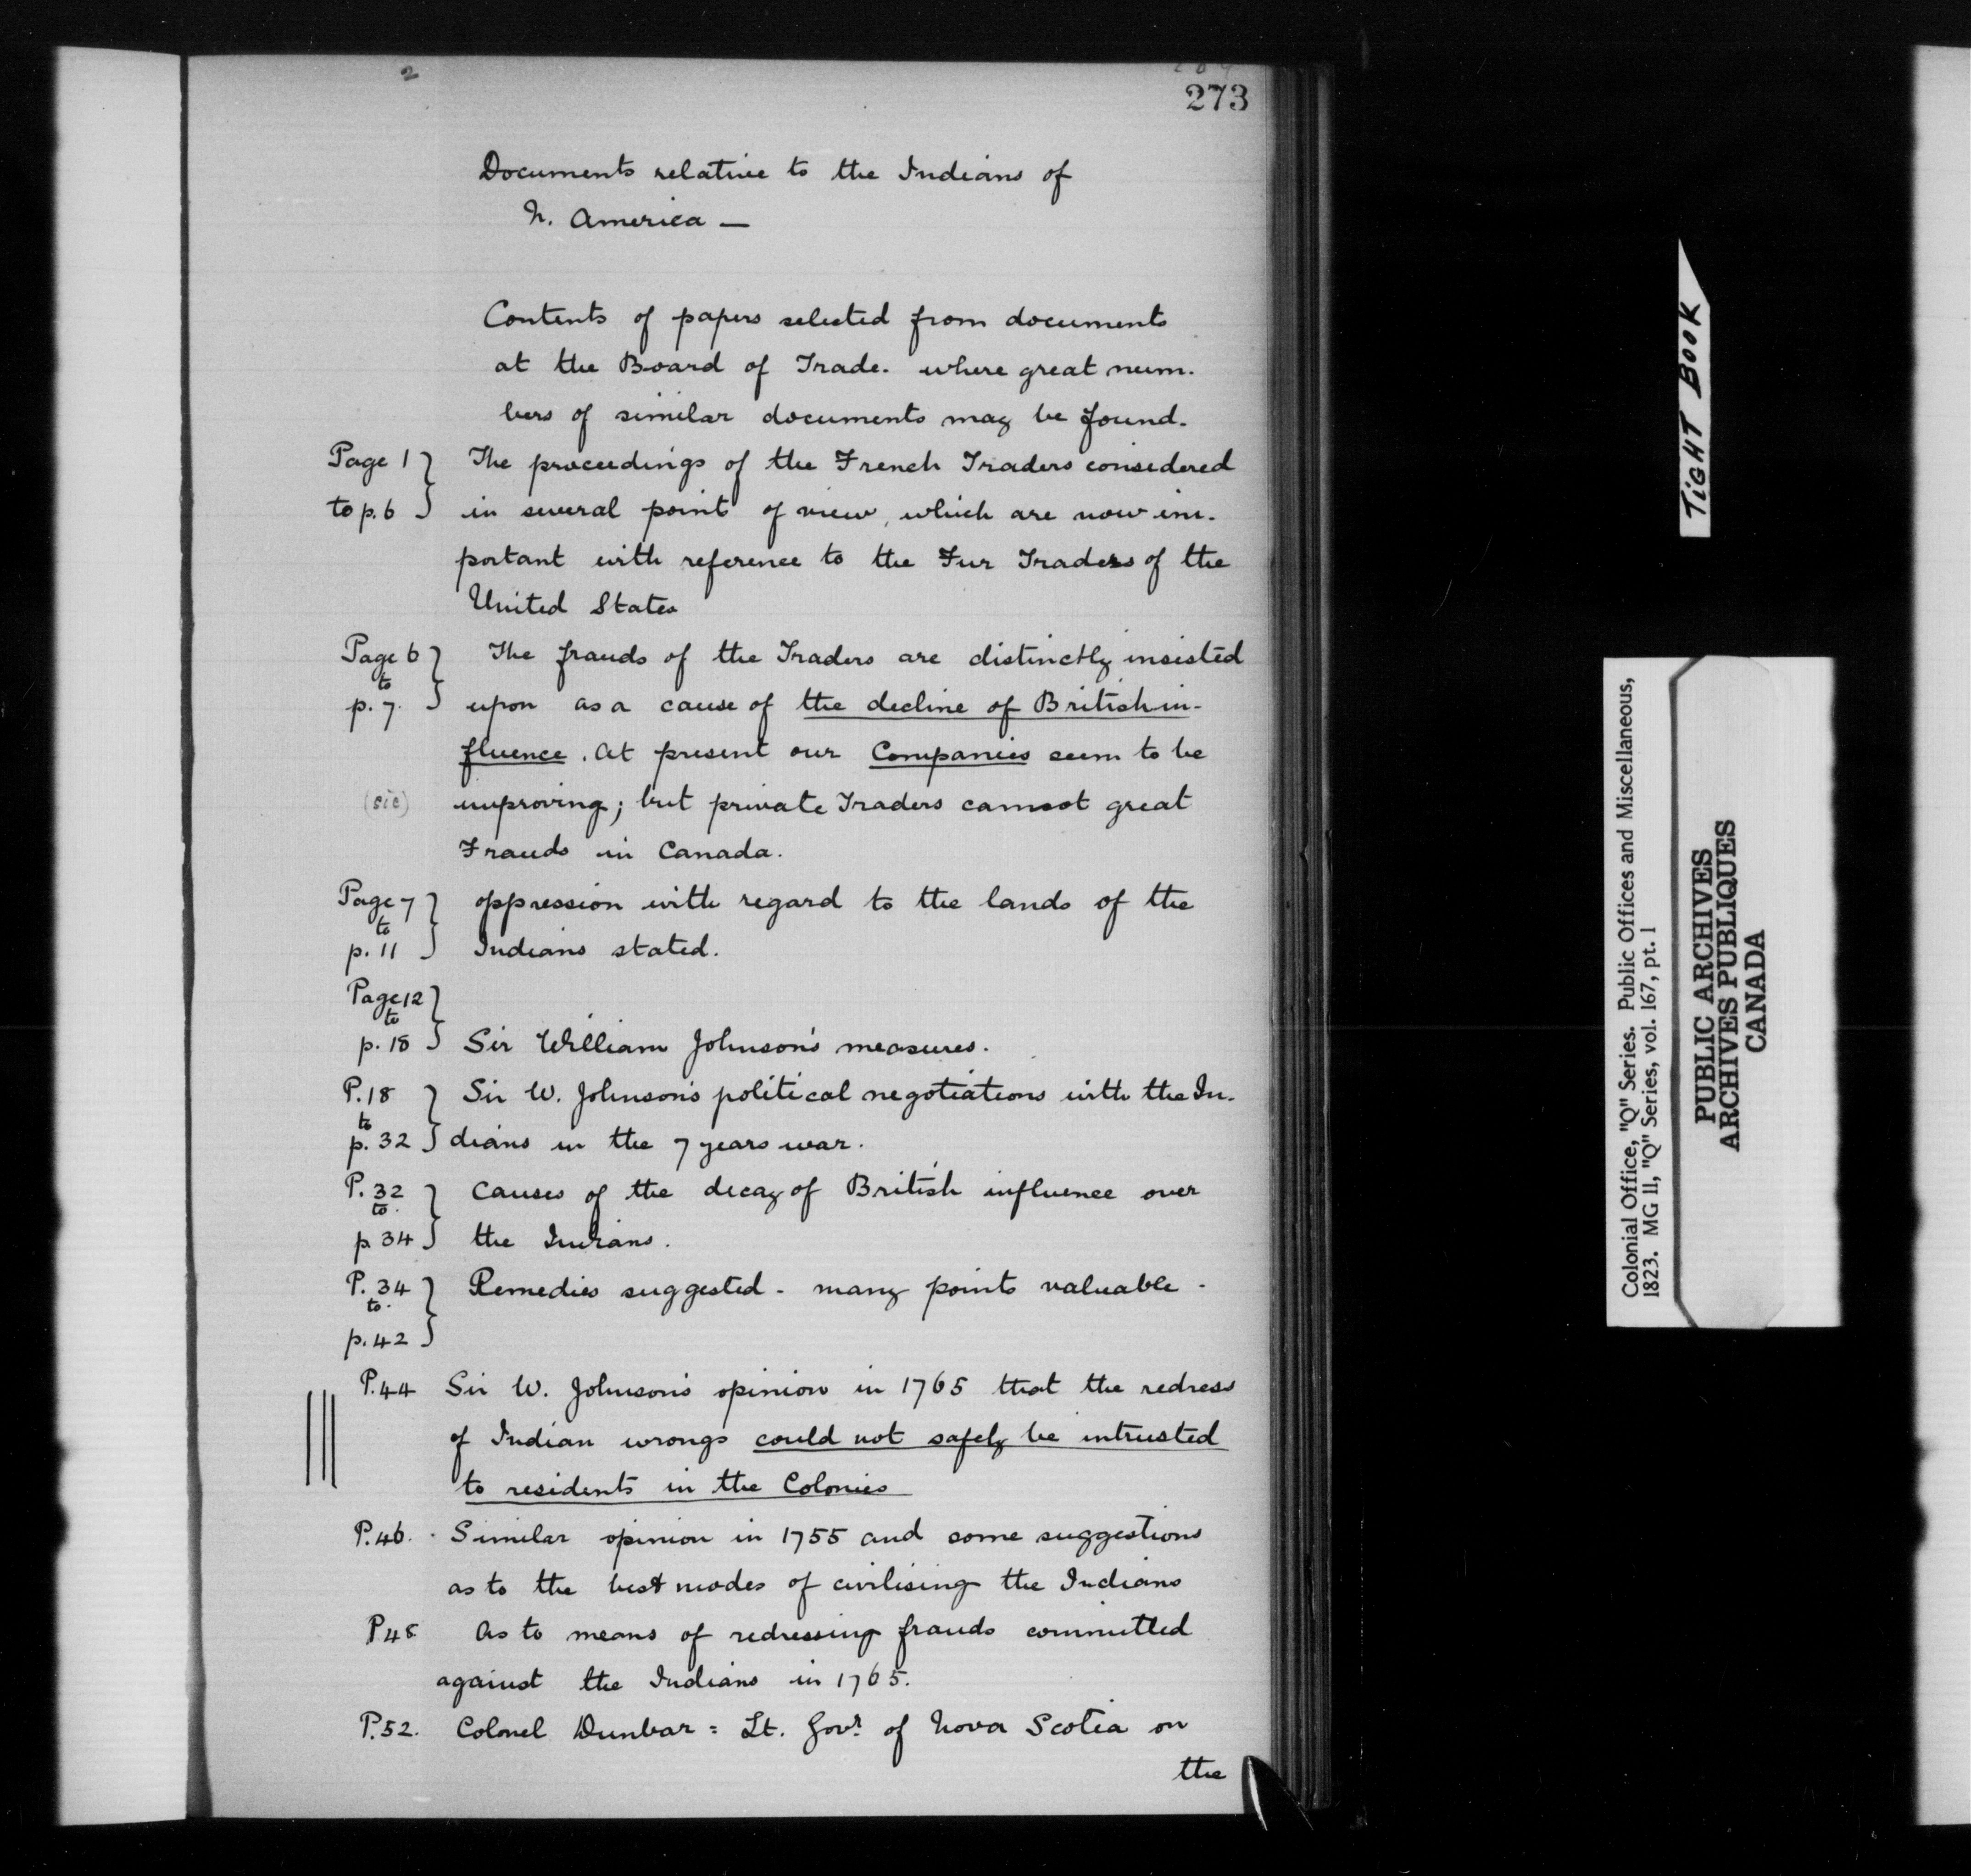 2
273
Documents relative to the Indians of
N. America —
Contents of papers selected from documents
at the Board of Trade. where great num-
bers of similar documents may be found.
Page 1 } The proceedings of the French Traders considered
to p. 6 } in several point of view, which are now im-
portant with reference to the Fur Traders of the
United States
Page 6 } The frauds of the Traders are distinctly insisted
to
p. 7. } upon as a cause of the decline of British in-
fluence. At present our Companies seem to be
(sic) improving; but private Traders cannot great
Frauds in Canada.
Page 7 } oppression with regard to the lands of the
to
p. 11 } Indians stated.
Page 12 }
to
p. 18 } Sir William Johnson's measures.
P. 18 } Sir W. Johnson's political negotiations with the In-
to
p. 32 } dians in the 7 years war.
P. 32 } Causes of the decay of British influence over
to.
p. 34 } the Indians.
P. 34 } Remedies suggested - many points valuable -
to.
p. 42 }
P. 44 Sir W. Johnson's opinion in 1765 that the redress
of Indian wrongs could not safely be intrusted
to residents in the Colonies
P. 46. Similar opinion in 1755 and some suggestions
as to the best modes of civilising the Indians
P 48 As to means of redressing frauds committed
against the Indians in 1765.
P. 52. Colonel Dunbar = Lt. Govr. of Nova Scotia on
the
TIGHT BOOK
Colonial Office, "Q" Series. Public Offices and Miscellaneous,
1823. MG 11, "Q" Series, vol. 167, pt. 1
PUBLIC ARCHIVES
ARCHIVES PUBLIQUES
CANADA